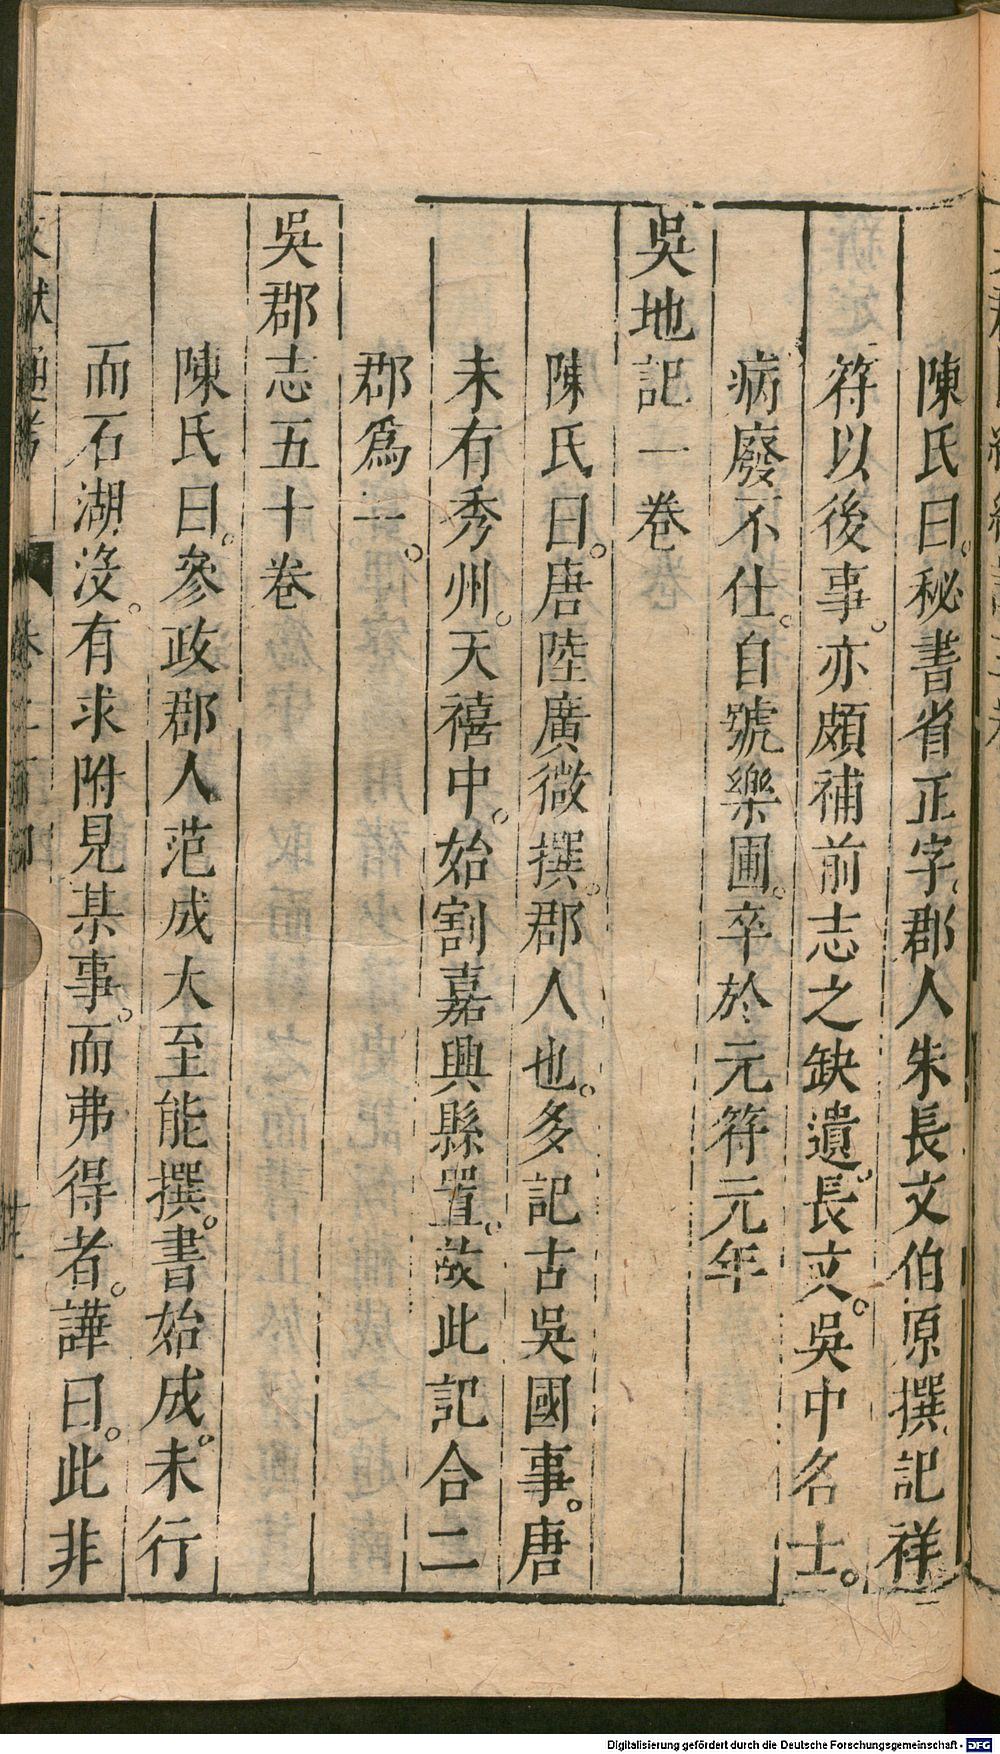 陳氏曰。秘書省正字、郡人朱長文伯原撰、記祥
符以後事。亦頗補前志之缺遺。長文。吳中名士。
病廢不仕。自號樂圃。卒於元符元年
吳地記一卷
陳氏曰。唐陸廣微撰。郡人也。多記古吳國事。唐
未有秀州。天禧中。始割嘉興縣置。故此記合二
郡爲一。
吳郡志五十卷
陳氏曰。參政郡人范成大至能撰。書始成。未行
而石湖沒。有求附見某事。而弗得者。譁曰。此非
文獻通考
Digitalisierung gefördert durch die Deutsche Forschungsgemeinschaft - DFG